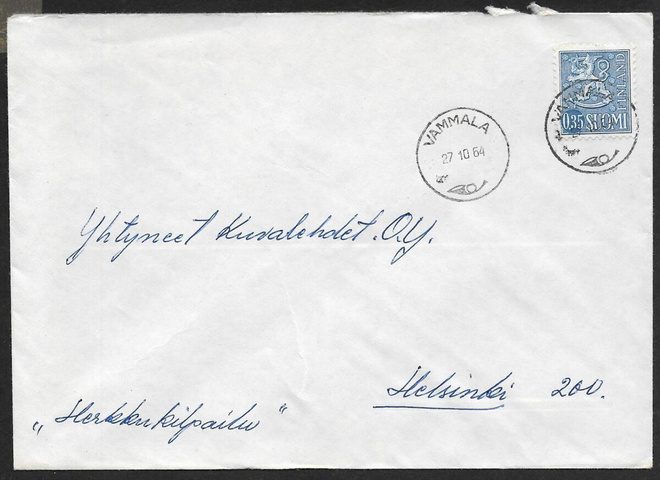 FINLAND
0,35 SUOMI
VAMMALA
VAMMALA
27 10 64
Yhtyneet Kuvalehdet. O.Y.
Helsinki 200.
„Herkkukilpailu"